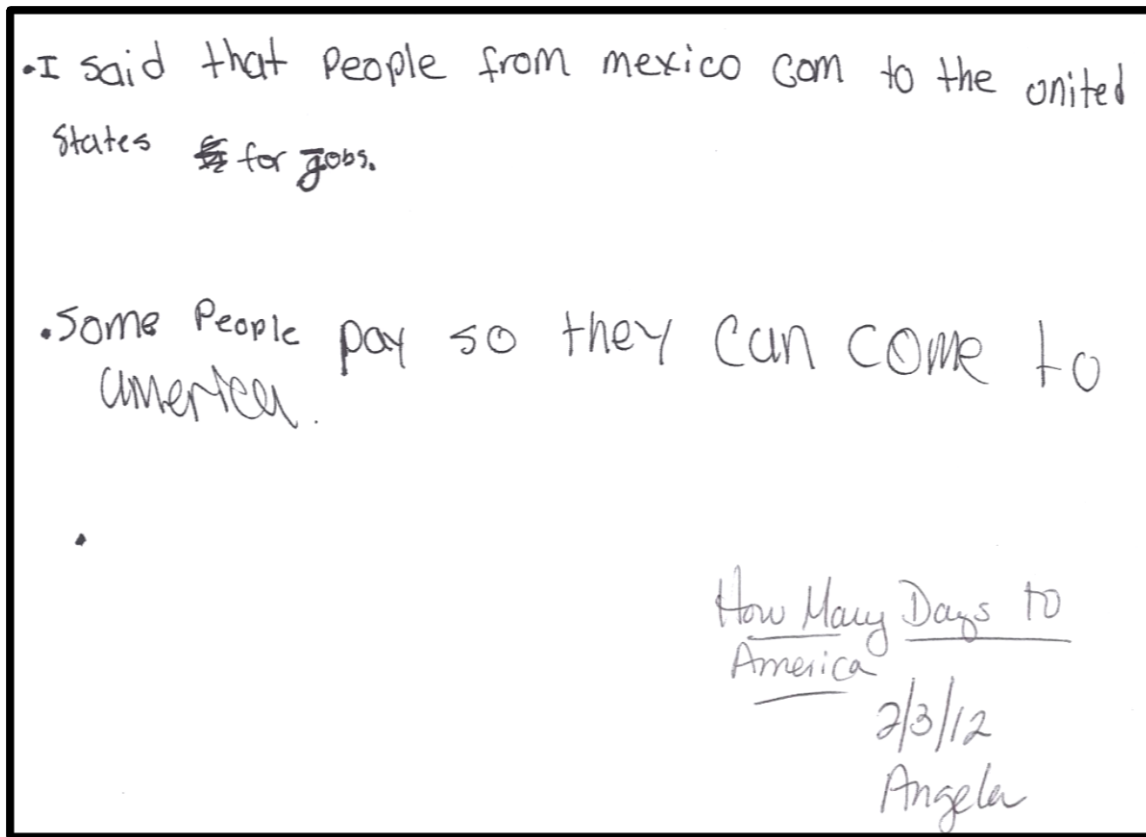 •I said that People from mexico com to the united
States for jobs.
•Some People pay so they can come to
america.
•
How Many Days to
America
2/3/12
Angela